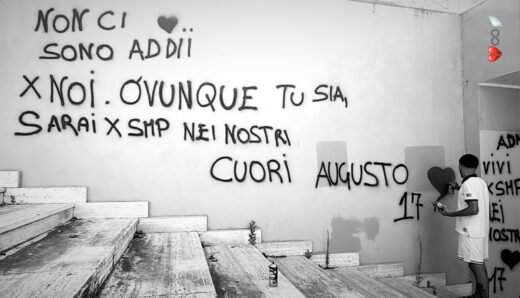 NON CI
SONO ADDII
X NOI. OVUNQUE TU SIA,
SARAI X SMP NEI NOSTRI
CUORI AUGUSTO
17
VIVI
X SMP
NEI
17
8